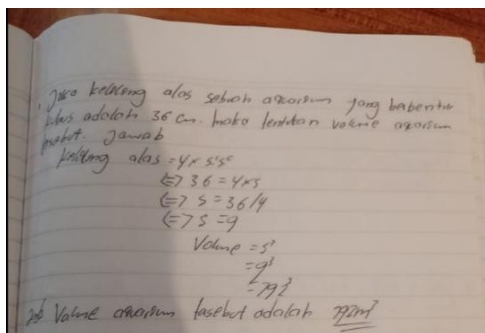 Jika keliling alas sebuah aquarium yang berbentuk
kubus adalah 36 cm. maka tentukan volume aquarium
tersebut. Jawab
keliling alas = 4 × sisi
<=> 36 = 4 × s
<=> s = 36/4
<=> s = 9
Volume = s³
= 9³
= 792
Jadi Volume aquarium tersebut adalah 792 m³